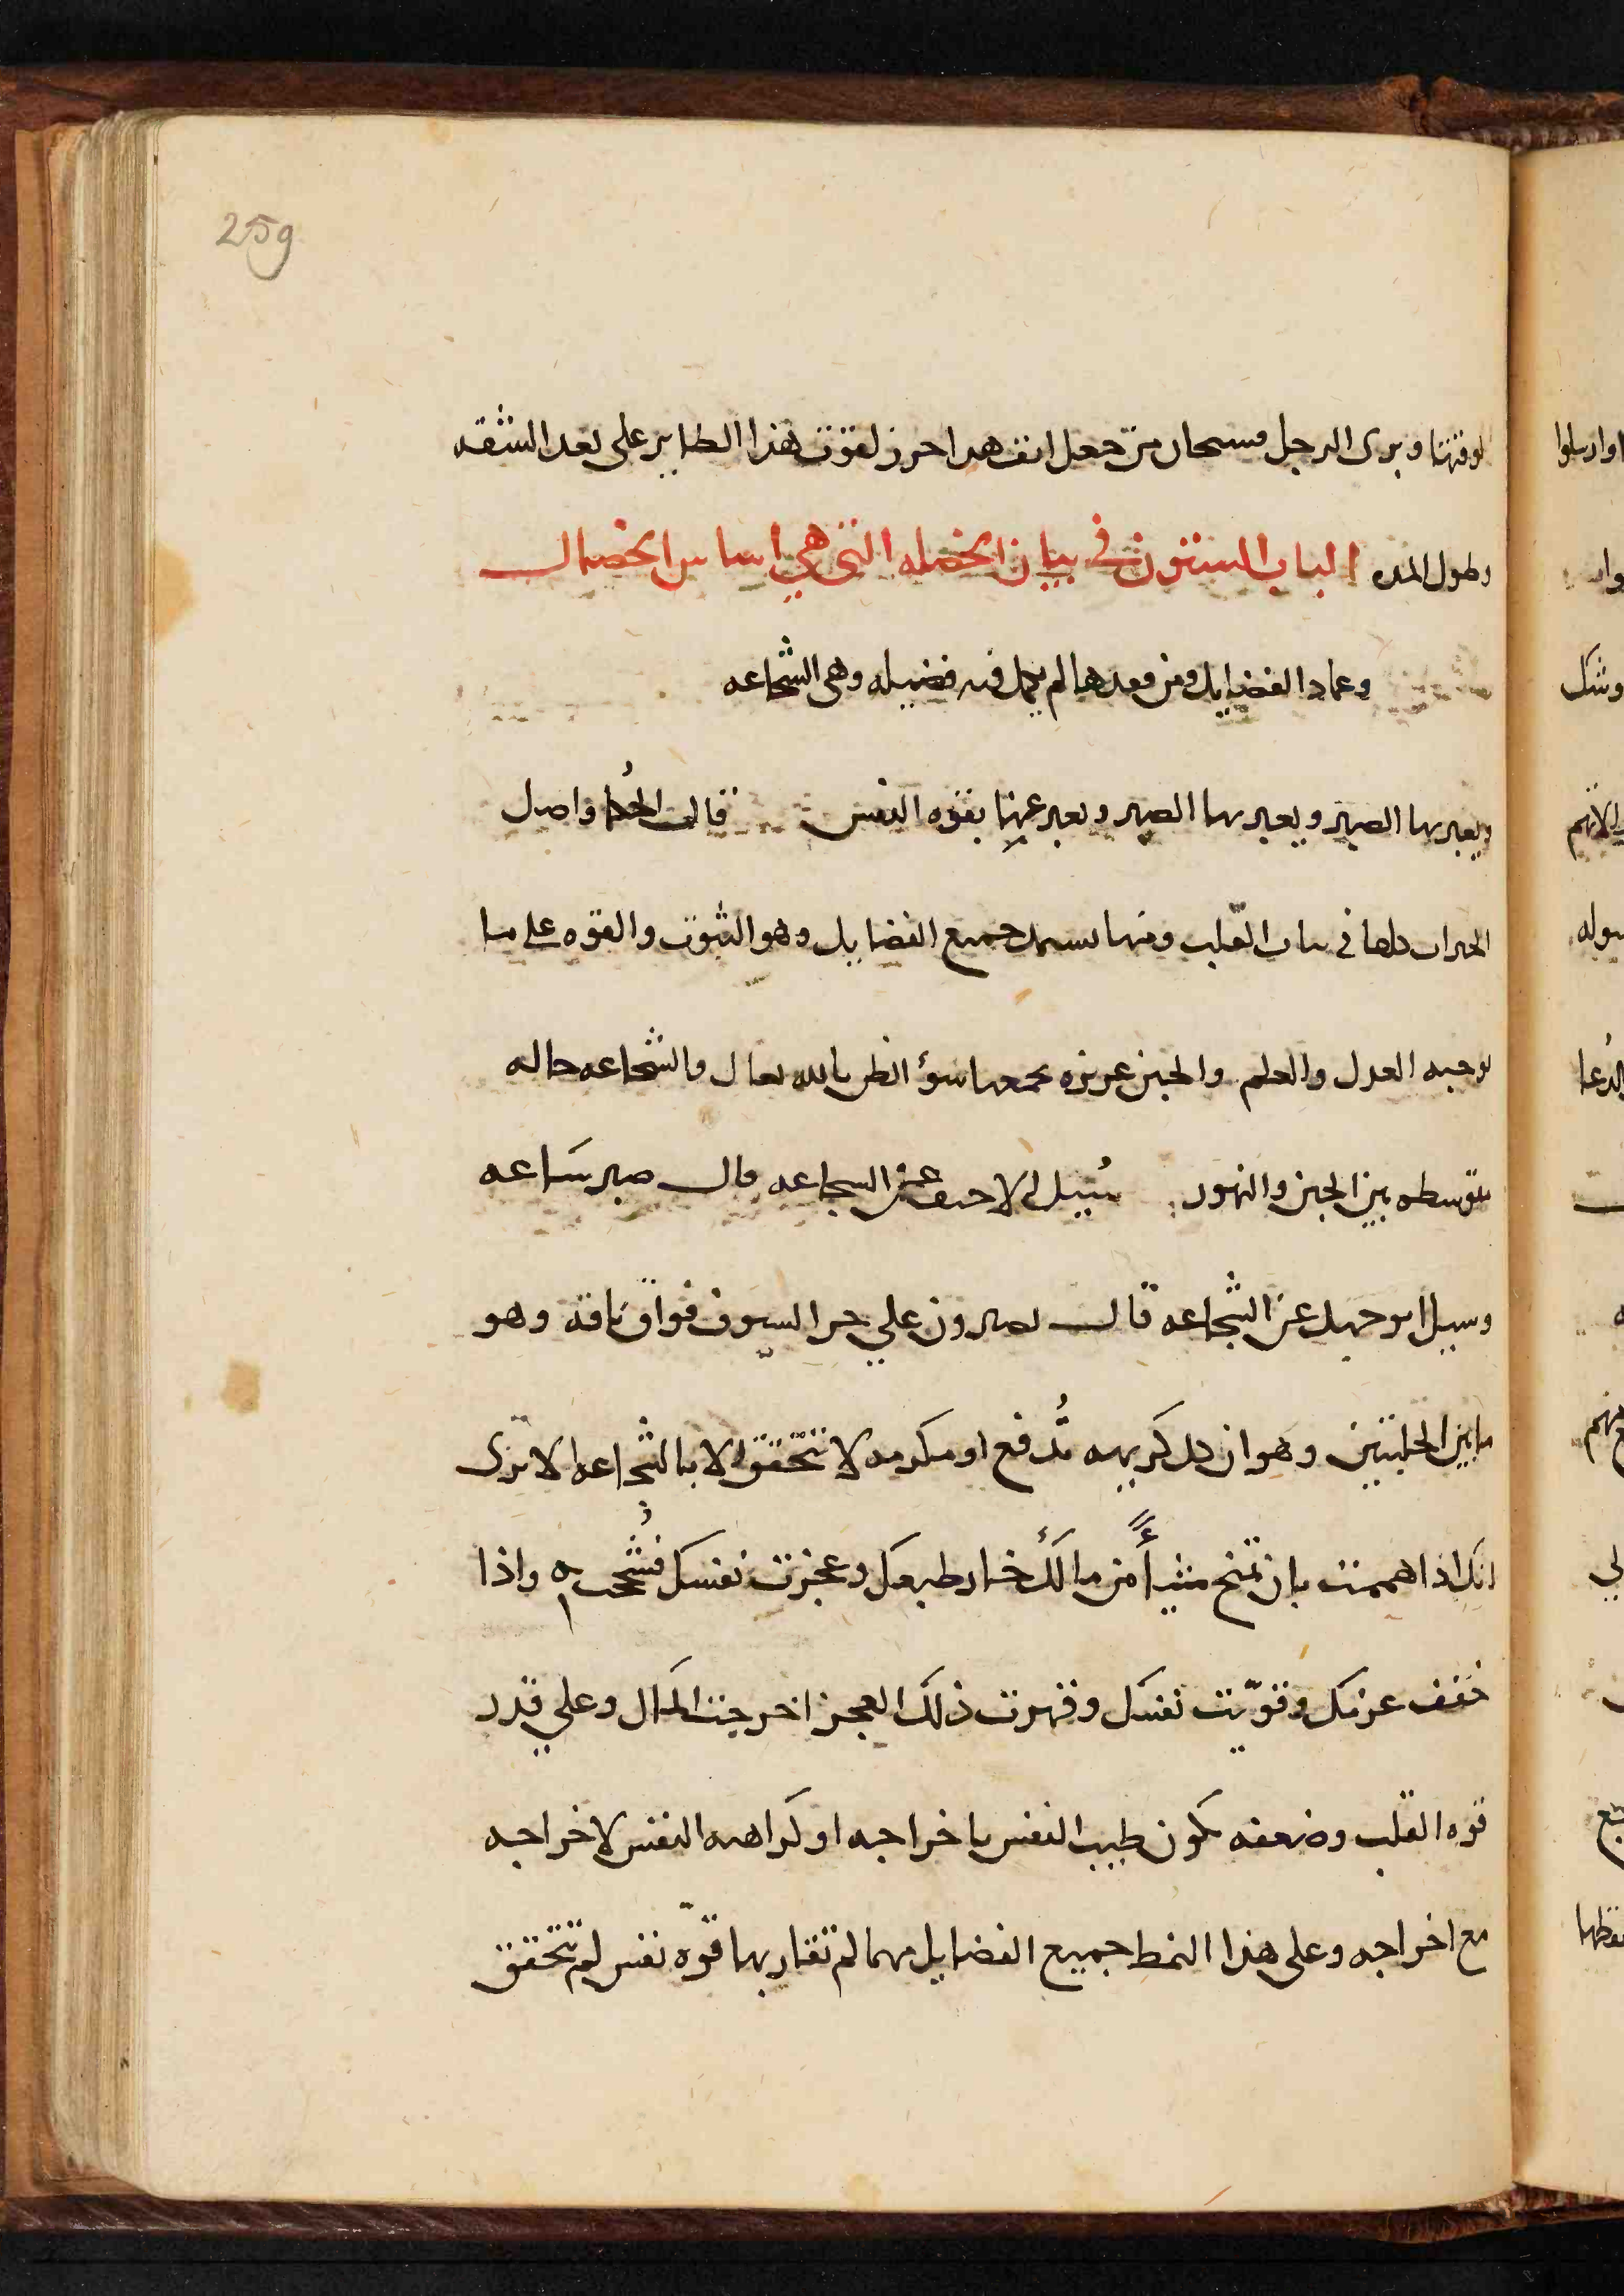 259
لوقتها وبرى الرجل فسبحان من جعل انف هدا حرز لقوت هذا الطاير على بعد الشقه
وطول المده الباب الستون في بيان الخصله التي هي اساس الخصال
وعماد الفضايل ومن فقدها لم يكمل فيه فضيله وهى الشجاعه
ويعبر بها الصبر ويعبر بها الصبر ويعبر عنها بقوه النفس قالت الحُكما واصل
الخيرات كلها في ثبات القلب ومنها يستمد جميع الفضايل وهو الثبوت والقوه على ما
يوجبه العدل والعلم والجبن غريزه يجمعها سوٴ الظن بالله تعالى والشجاعه حاله
متوسطه بين الجبن والتهور سُيل الاحنف عن الشجاعه قال صبر ساعه
وسيل ابو جهل عن الشجاعه قال تصبرون على حر السيوف فواق ناقه وهو
ما بين الحلبتين وهو ان كل كريهه تُدفع او مكرمه لا تتحقق الا بالشجاعه الا ترى
انك اذا هممت بان تمنح شيأً من مالك خار طبعك وعجزت نفسك فشُحت به واذا
حققت عزمك وقوّيت نفسك وقهرت ذلك العجز اخرجت المال وعلى قدر
قوه القلب وضعفه يكون طيب النفس باخراجه او كراهه النفس لاخراجه
مع اخراجه وعلى هذا النمط جميع الفضايل مهما لم تقاربها قوّه نفس لم تتحقق